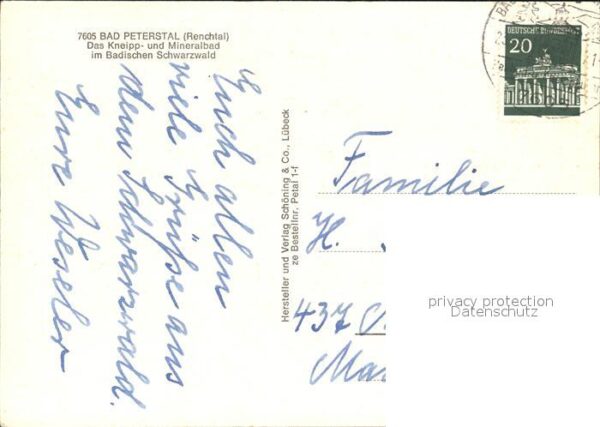 7605 BAD PETERSTAL (Renchtal)
Das Kneipp- und Mineralbad
im Badischen Schwarzwald
Euch allen
viele Grüße aus
dem Schwarzwald.
Eure Weseler
Hersteller und Verlag Schöning & Co., Lübeck
ze Bestellnr. Petal 1-f
DEUTSCHE BUNDESPOST
20
Familie
H.
437
privacy protection
Datenschutz